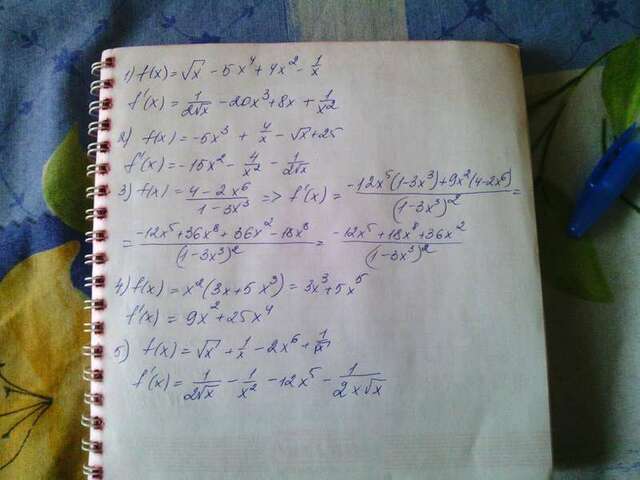 1) f(x) = √x - 5x⁴ + 4x² - 1/x
f'(x) = 1/(2√x) - 20x³ + 8x + 1/x²
2) f(x) = -5x³ + 4/x - √x + 25
f'(x) = -15x² - 4/x² - 1/(2√x)
3) f(x) = (4 - 2x⁶)/(1 - 3x³) => f'(x) = (-12x⁵(1-3x³) + 9x²(4-2x⁶))/(1-3x³)² =
= (-12x⁵ + 36x⁸ + 36x² - 18x⁸)/(1-3x³)² = (-12x⁵ + 18x⁸ + 36x²)/(1-3x³)²
4) f(x) = x²(3x + 5x³) = 3x³ + 5x⁵
f'(x) = 9x² + 25x⁴
5) f(x) = √x + 1/x - 2x⁶ + 1/√x
f'(x) = 1/(2√x) - 1/x² - 12x⁵ - 1/(2x√x)